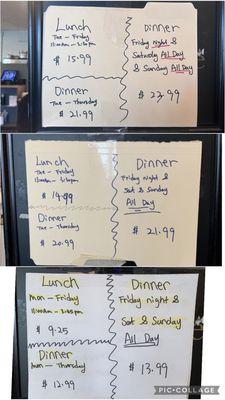 Lunch
Tue - Friday
11:00am - 3:30pm
$ 15.99
Dinner
Tue - Thursday
$ 21.99
Dinner
Friday night &
Saturday All Day
& Sunday All Day
$ 23.99
Lunch
Tue - Friday
11:00am - 3:30pm
$ 14.99
Dinner
Tue - Thursday
$ 20.99
Dinner
Friday night &
Sat & Sunday
All Day
$ 21.99
Lunch
Mon - Friday
$ 9.25
Dinner
Mon - Thursday
$ 12.99
Dinner
Friday night &
Sat & Sunday
All Day
$ 13.99
PIC•COLLAGE